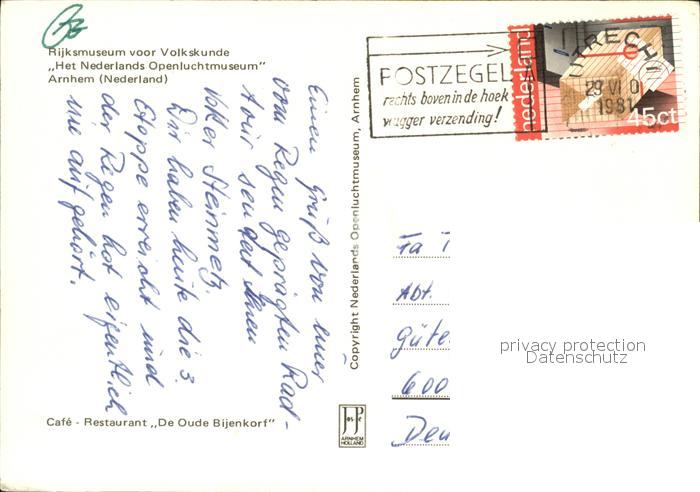 Rijksmuseum voor Volkskunde
„Het Nederlands Openluchtmuseum"
Arnhem (Nederland)
Einen Gruß von einer
vom Regen geprägten Rad-
tour sendet Ihnen
Volker Steinmetz.
Wir haben heute die 3.
Etappe erreicht und
der Regen hat eigentlich
nie aufgehört.
Café - Restaurant „De Oude Bijenkorf"
Copyright Nederlands Openluchtmuseum, Arnhem
JosPé
ARNHEM
HOLLAND
POSTZEGEL
rechts boven in de hoek
vlugger verzending!
UTRECHT
1981
nederland
45ct
Fa
Abt.
Güte
600
Deu
privacy protection
Datenschutz